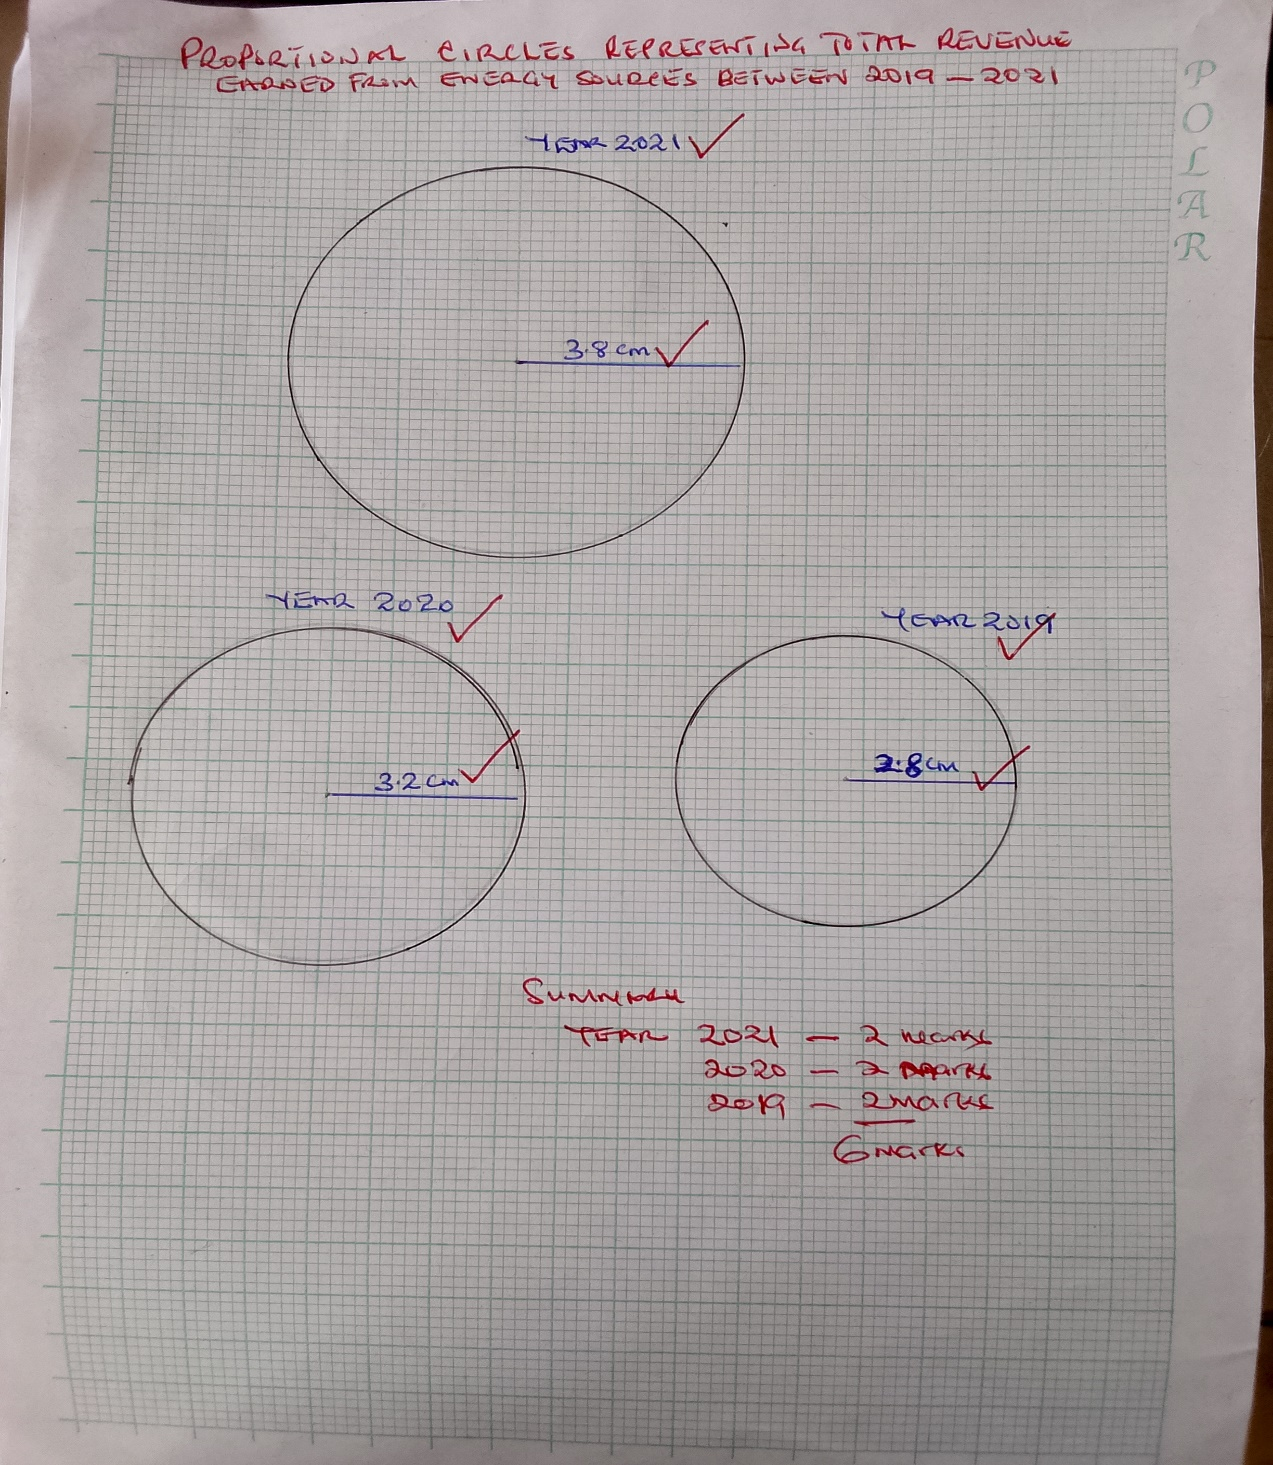 PROPORTIONAL CIRCLES REPRESENTING TOTAL REVENUE
EARNED FROM ENERGY SOURCES BETWEEN 2019 – 2021
POLAR
YEAR 2021
3.8 cm
YEAR 2020
YEAR 2019
3.2 cm
2.8 cm
Summary
YEAR 2021 – 2 marks
2020 – 2 marks
2019 – 2 marks
6 marks